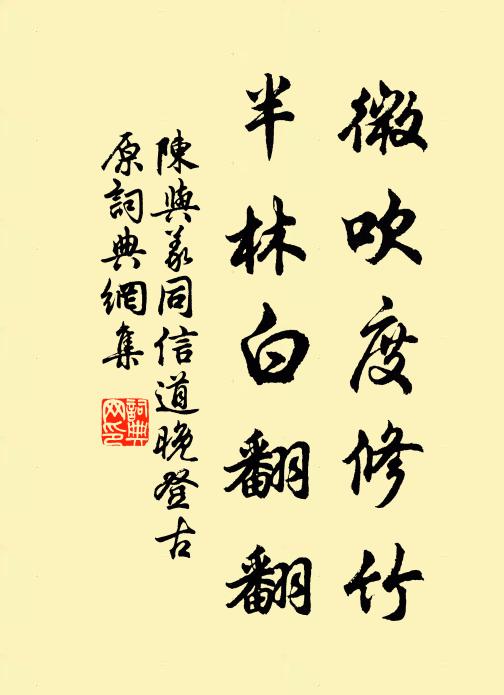 微吹度修竹
半林白翻翻
陳與義同信道晚登古
原詞典網集
詞典
网印